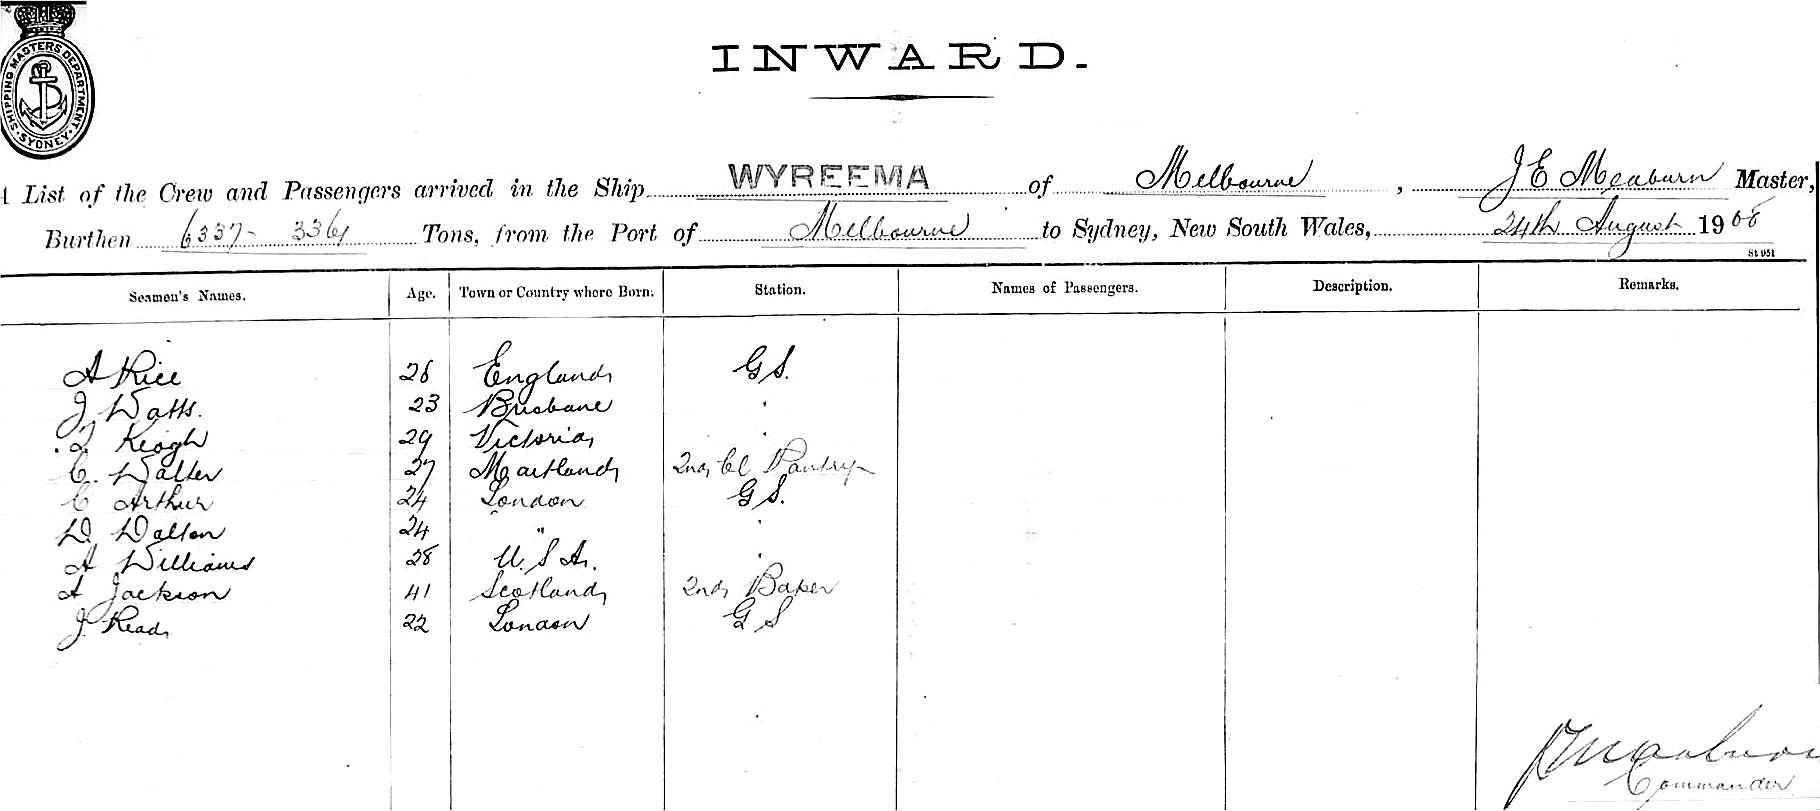 SHIPPING MASTERS DEPARTMENT
SYDNEY
INWARD.
List of the Crew and Passengers arrived in the Ship WYREEMA of Melbourne, J E Meaburn Master,
Burthen 6337 - 3361 Tons, from the Port of Melbourne to Sydney, New South Wales, 24th August 1908
St 951
Seamen's Names. Age. Town or Country where Born. Station. Names of Passengers. Description. Remarks.
A Rice 26 England G S.
J Watts. 23 Brisbane "
Keogh 29 Victoria "
C. Walter 27 Maitland 2nd Cl Pantry
C Arthur 24 London G S.
D. Dalton 24 " "
A Williams 28 U. S A. "
A Jackson 41 Scotland 2nd Baker
J. Read 22 London G S
Commander